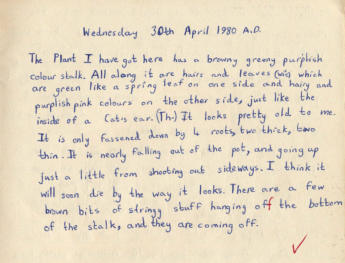 Wednesday 30th April 1980 A.D.
The Plant I have got here has a browny greeny purplish
colour stalk. All along it are hairs and leaves which
are green like a spring leaf on one side and hairy and
purplish pink colours on the other side, just like the
inside of a Cats ear. (Th-) It looks pretty old to me.
It is only fassened down by 4 roots, two thick, two
thin. It is nearly falling out of the pot, and going up
just a little from shooting out sideways. I think it
will soon die by the way it looks. There are a few
brown bits of stringy stuff hanging off the bottom
of the stalk, and they are coming off.